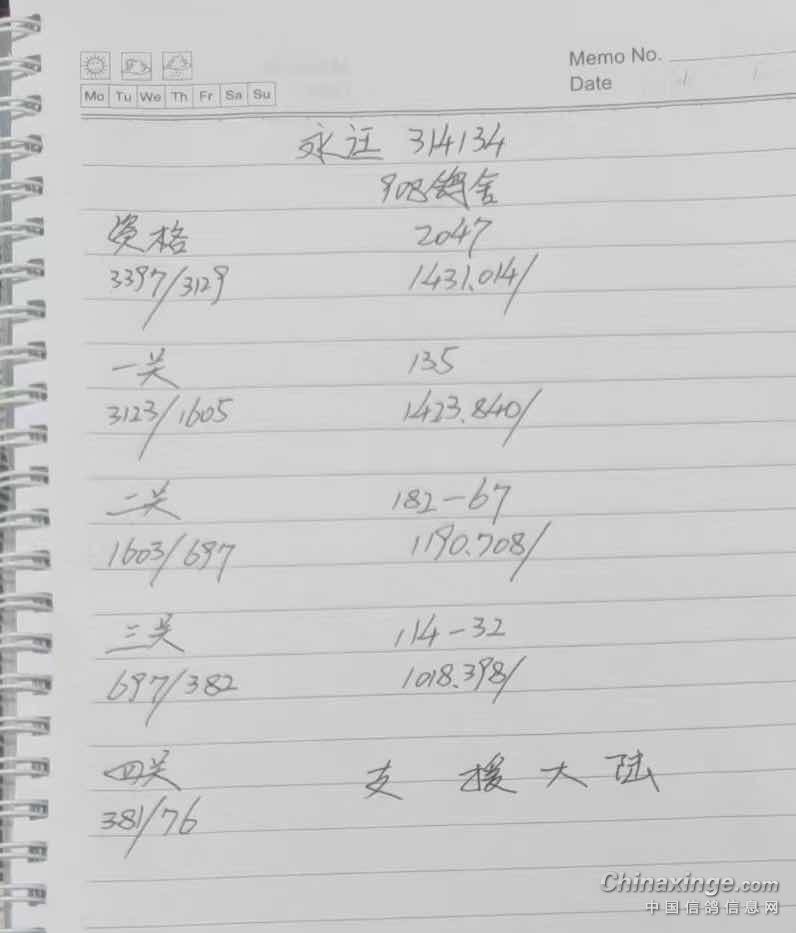 Memo No.
Mo Tu We Th Fr Sa Su
Date
永汪 314134
908鸽舍
资格 2047
3397/3129 1431.014/
一关 135
3123/1605 1423.840/
二关 182-67
1603/697 1190.708/
三关 114-32
697/382 1018.398/
四关 支援大陆
381/76
Chinaxinge.com
中国信鸽信息网